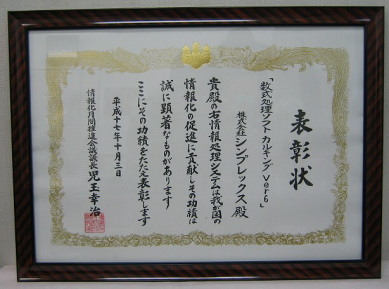 表彰状
「数式処理ソフトカルキングVer6」
株式会社シンプレックス殿
貴殿の右情報処理システムは我が国の
情報化の促進に貢献しその功績は
誠に顕著なものがあります
ここにその功績をたたえ表彰します
平成十七年十月三日
情報化月間推進会議議長 児玉幸治